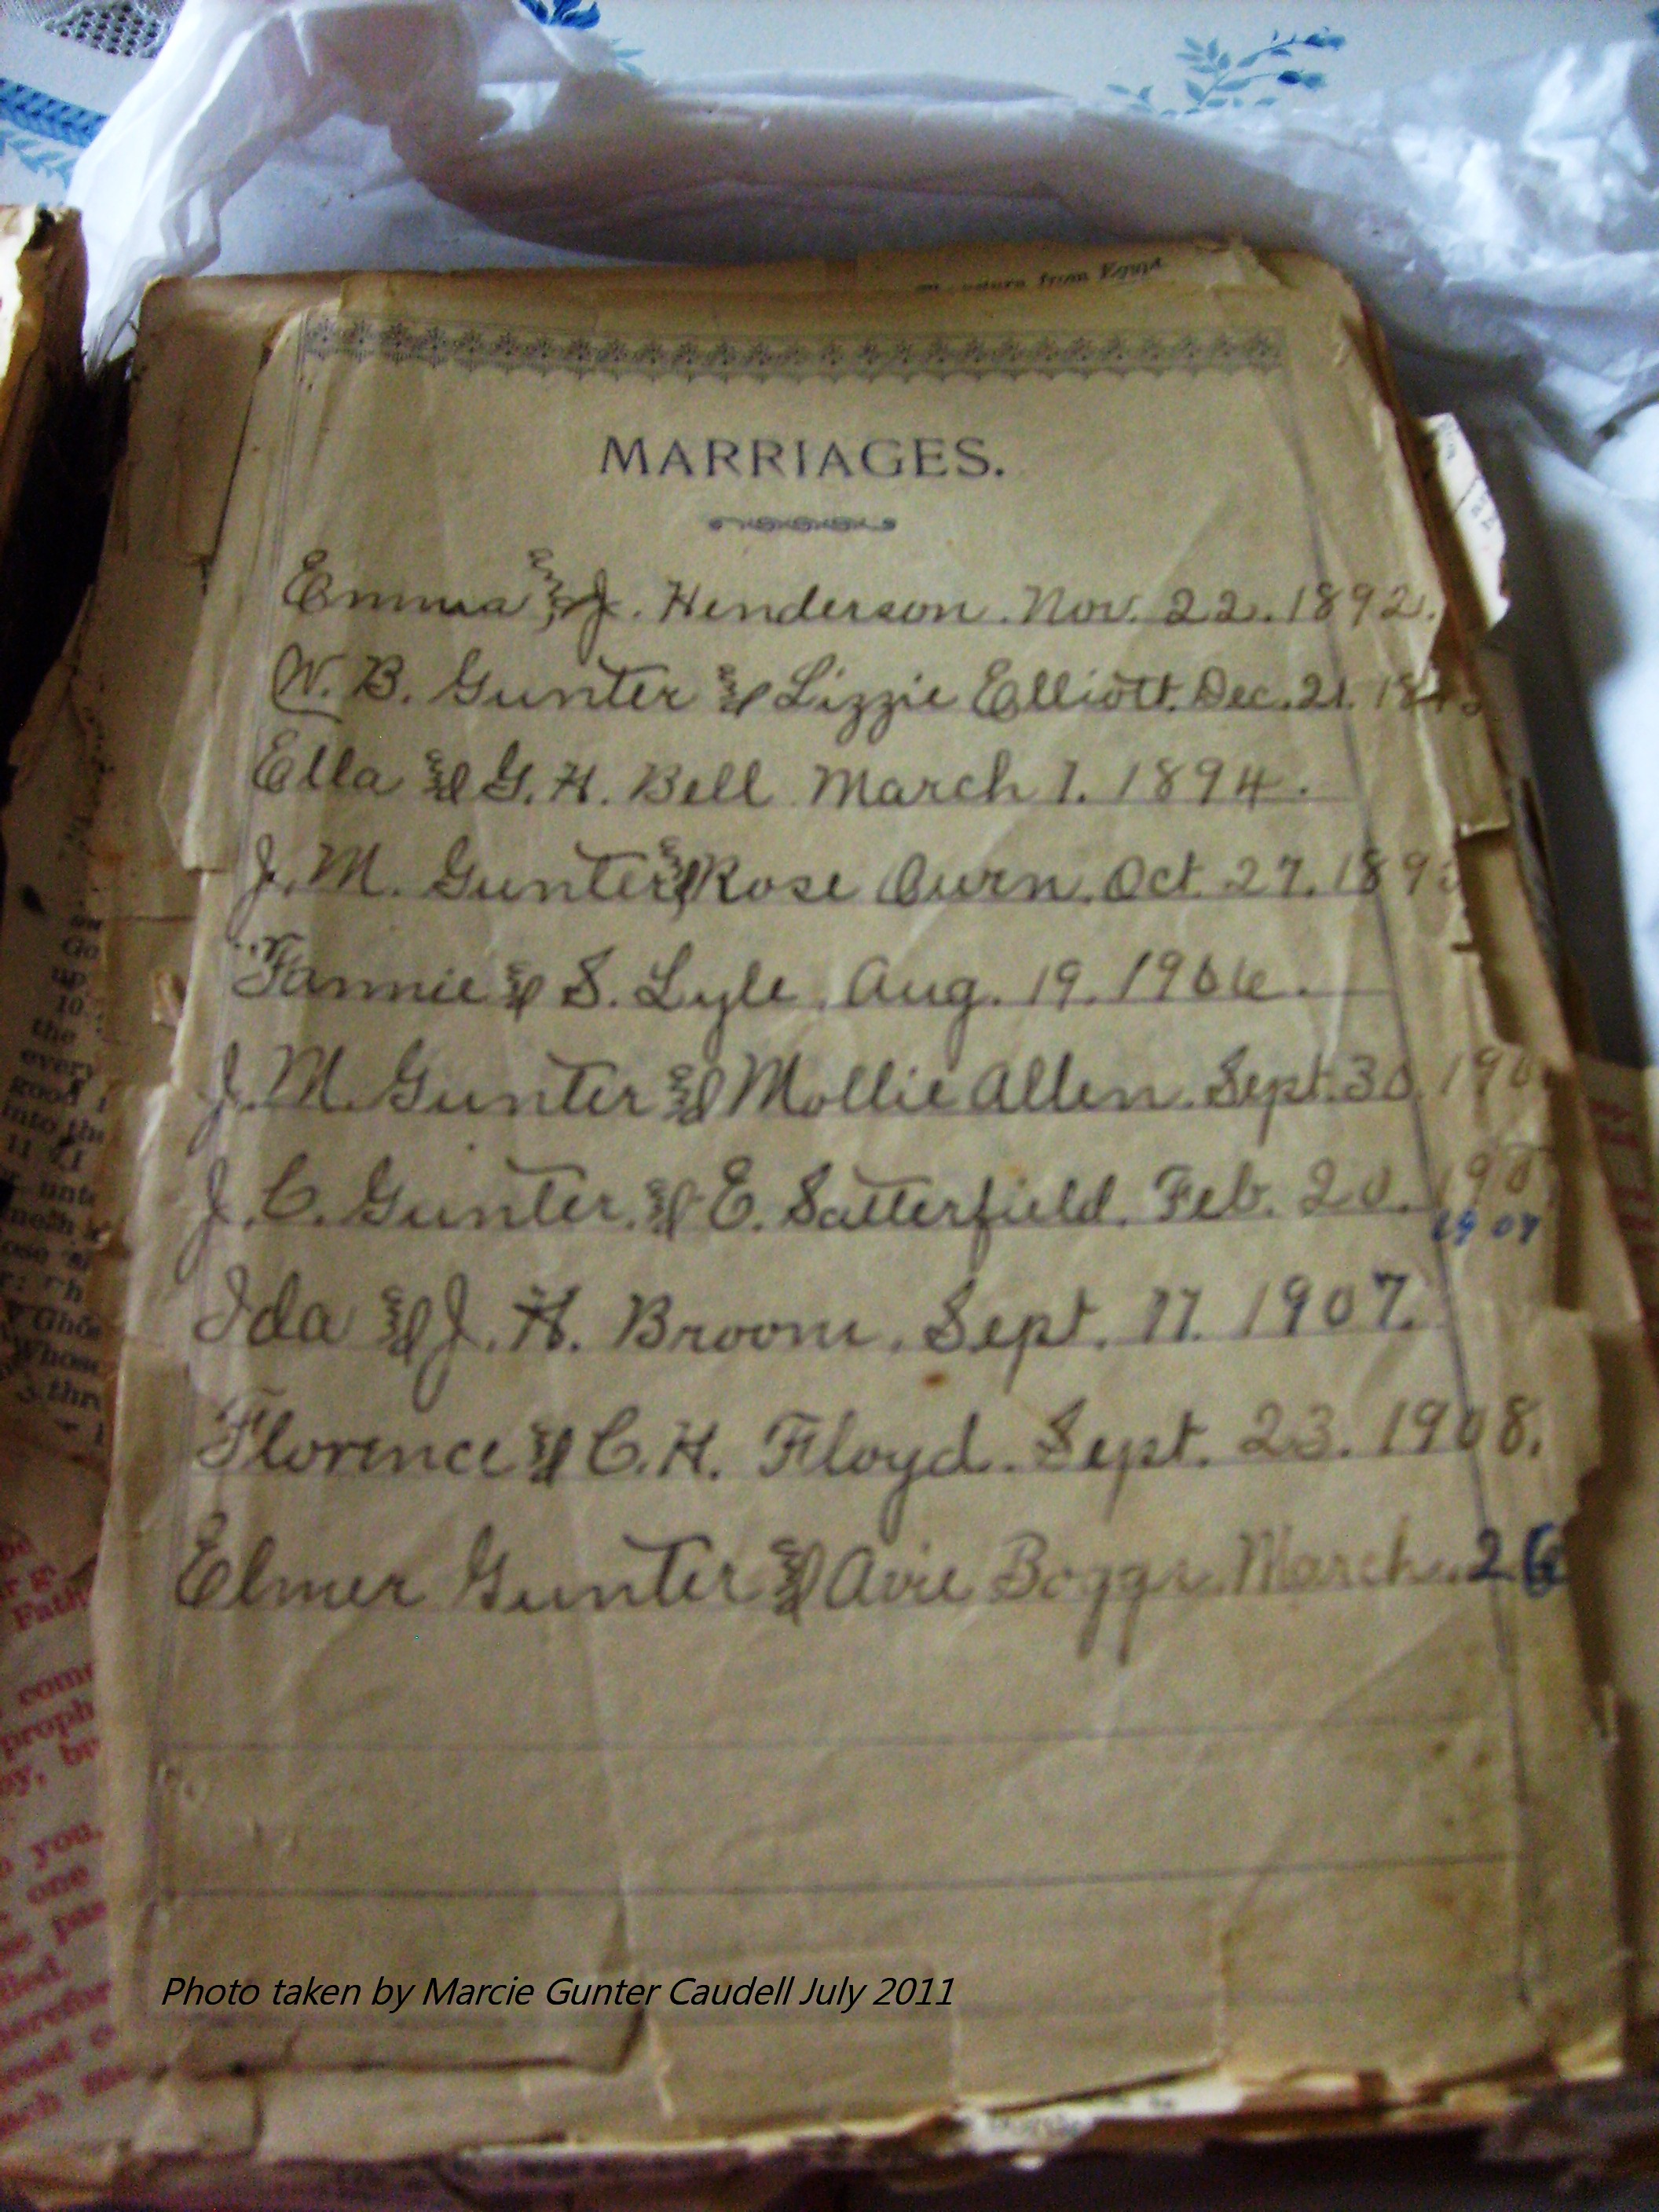 return from Egypt
MARRIAGES.
Emma & J. Henderson. Nov. 22. 1892.
W. B. Gunter & Lizzie Elliott. Dec. 21. 
Ella & G. H. Bell March 1. 1894.
J. M. Gunter & Rose Oct. 27. 189
Fannie & S. Lyle. Aug. 19. 1906.
J. M. Gunter & Mollie Allen. Sept. 30. 190
J. C. Gunter. & E. Satterfield. Feb. 20. 190
1907
Ida & J. H. Broom. Sept. 17. 1907.
Florence & C. H. Floyd. Sept. 23. 1908.
Elmer Gunter & Avie Boggs. March. 26
Go
up
10
the
every
good
into the
11
Ghos
Whose
3 thr
Fath
com
proph
you,
one
Photo taken by Marcie Gunter Caudell July 2011